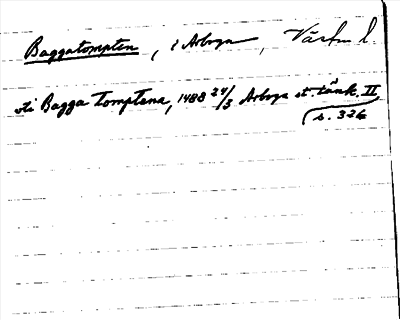 Baggatompten, i Arboga, Västm l.
i Bagga Tomptena, 1488 24/3 Arboga st. tänk. II
s. 326